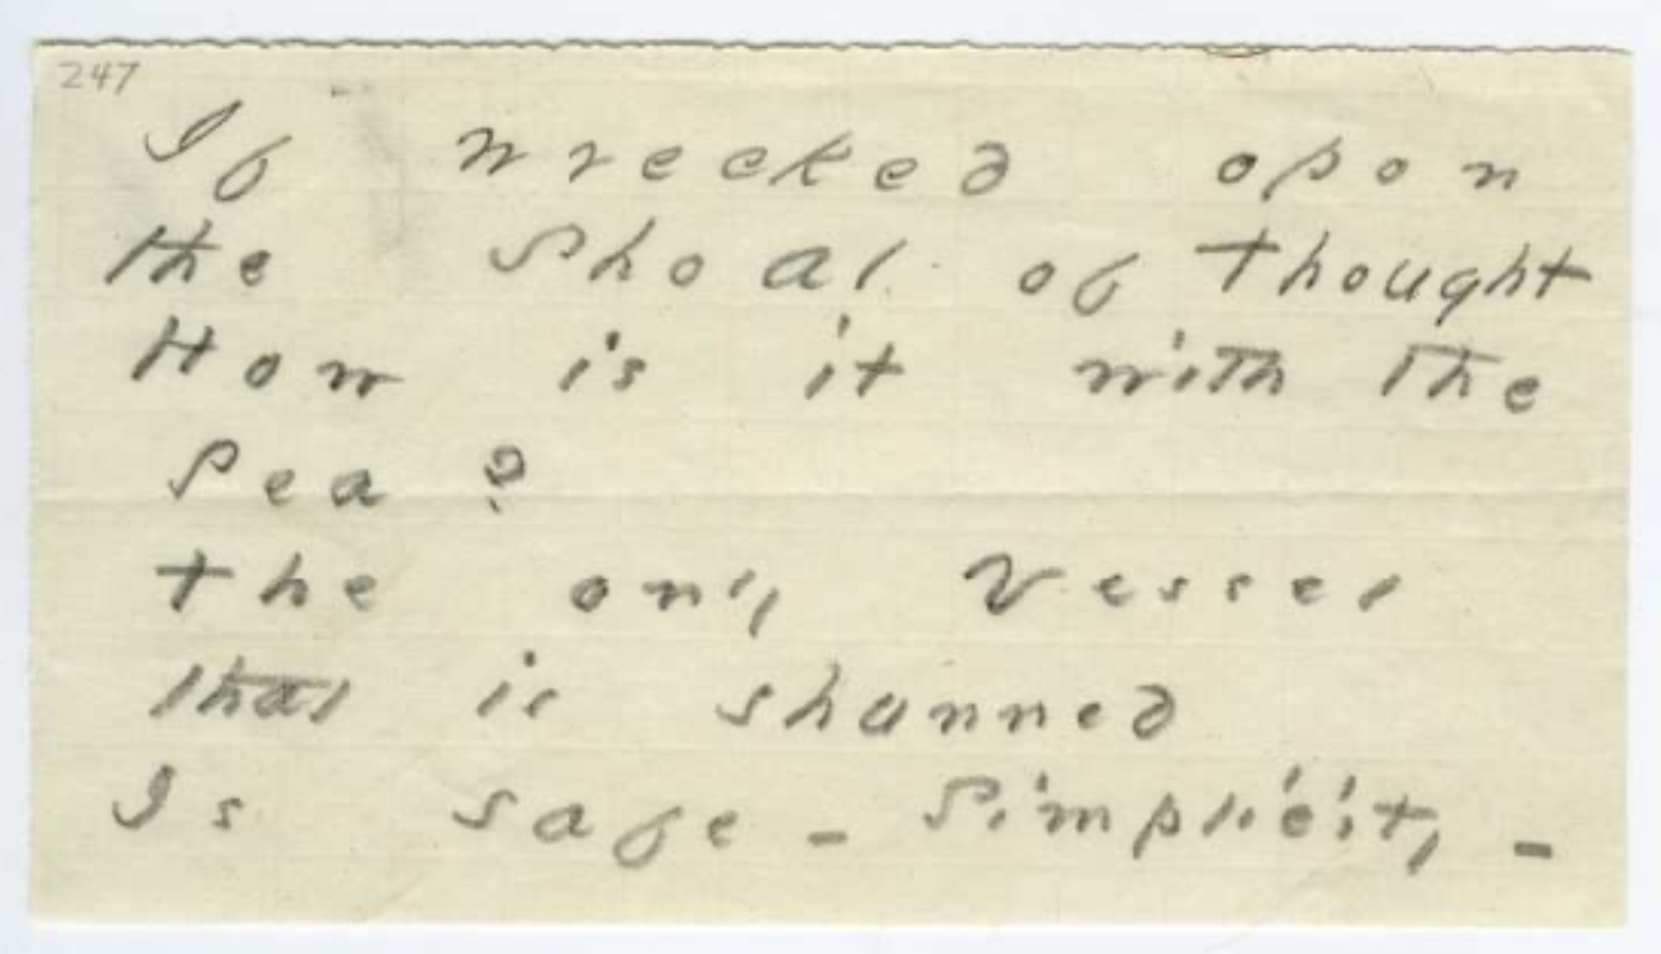 247
If wrecked opon
the Shoal of thought
How is it with the
Sea?
the only Vessel
that is shunned
Is safe - Simplicity -